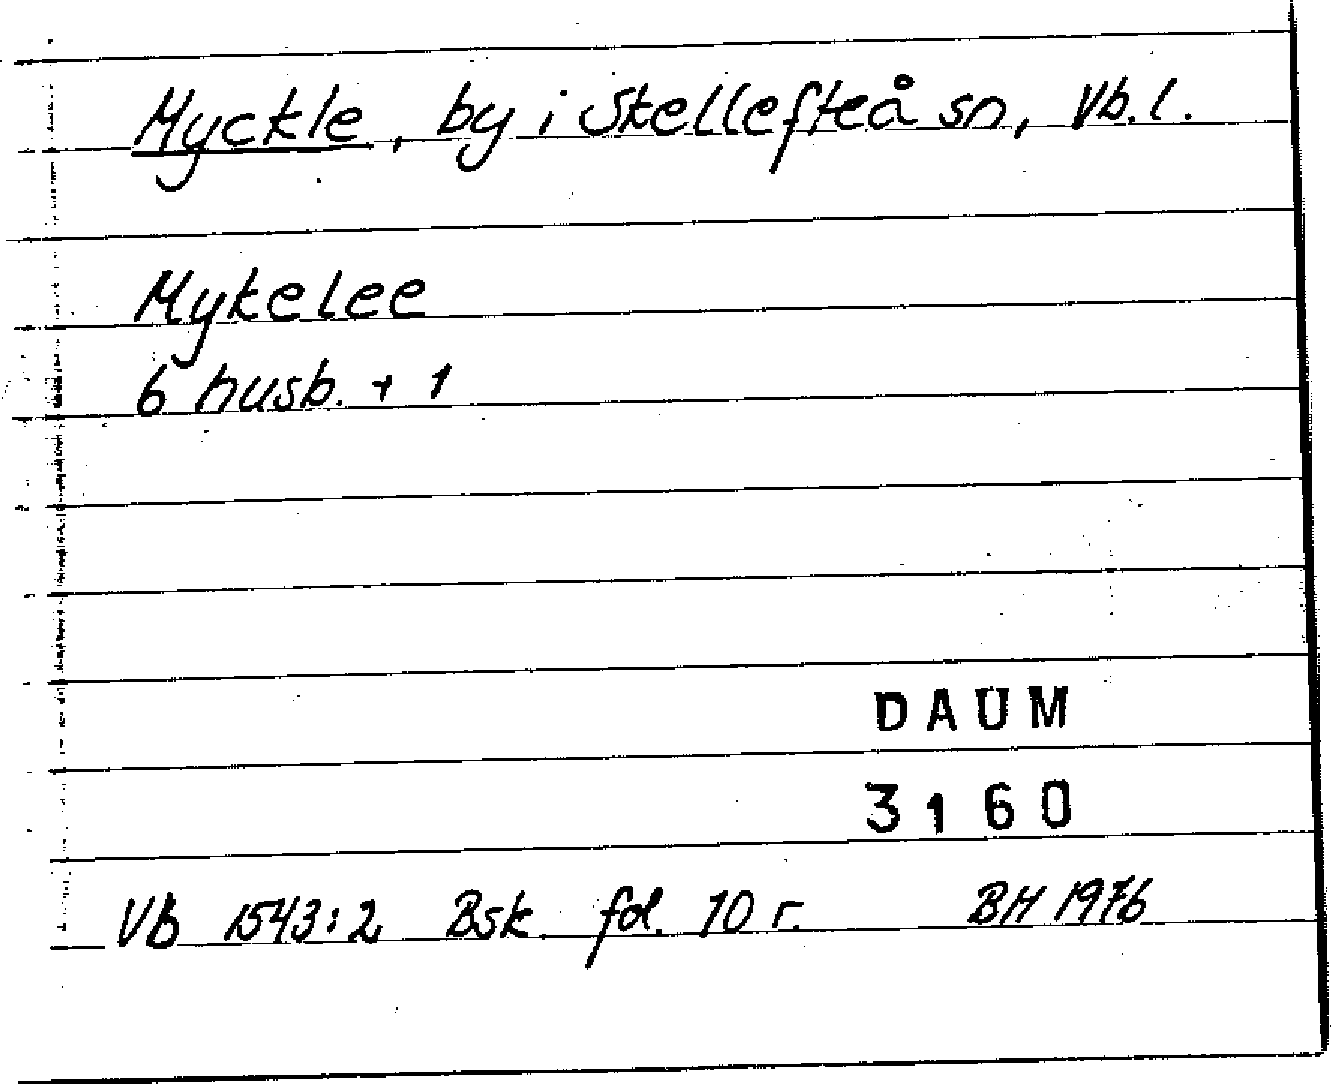 Myckle, by i Skellefteå sn, Vb.l.
Mykelee
6 husb. + 1
DAUM
3160
Vb 1543:2 Bsk. fol. 10 r. BH 1976